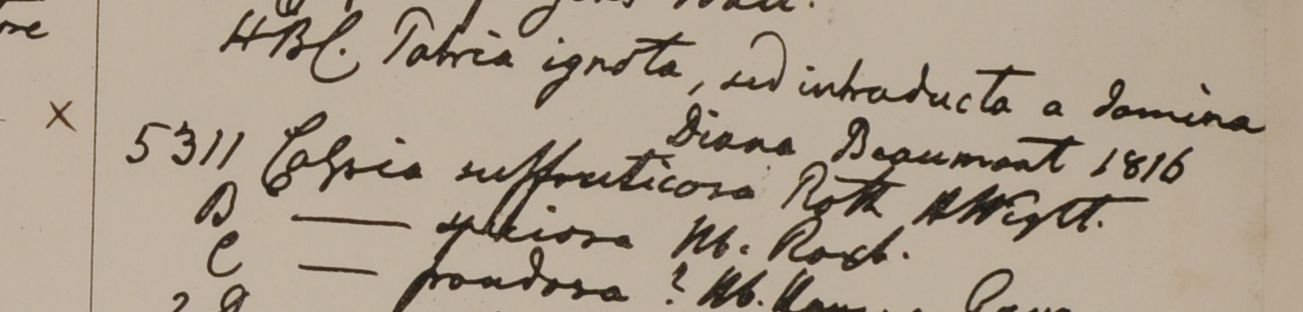 re
Wall.
HBC. Patria ignota, sed introducta a domina
Diana Beaumont 1816
X
5311 Colsia suffruticosa Roth HWight.
B — speciosa Hb. Roxb.
C — frondosa ? Hb.